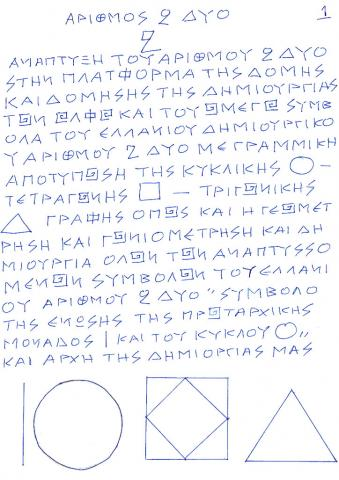 ΑΡΙΘΜΟΣ 2 ΔΥΟ
1
2
ΑΝΑΠΤΥΞΗ ΤΟΥ ΑΡΙΘΜΟΥ 2 ΔΥΟ
ΣΤΗΝ ΠΛΑΤΦΟΡΜΑ ΤΗΣ ΔΟΜΗΣ
ΚΑΙ ΔΟΜΗΣΗΣ ΤΗΣ ΔΗΜΙΟΥΡΓΙΑΣ
ΤΩΝ ΑΛΦΑ ΚΑΙ ΤΟΥ ΩΜΕΓΑ ΣΥΜΒ
ΟΛΑ ΤΟΥ ΕΛΛΑΝΙΟΥ ΔΗΜΙΟΥΡΓΙΚΟ
Υ ΑΡΙΘΜΟΥ 2 ΔΥΟ ΜΕ ΓΡΑΜΜΙΚΗ
ΑΠΟΤΥΠΩΣΗ ΤΗΣ ΚΥΚΛΙΚΗΣ ◯ –
ΤΕΤΡΑΓΩΝΗΣ □ – ΤΡΙΓΩΝΙΚΗΣ
△ ΓΡΑΦΗΣ ΟΠΩΣ ΚΑΙ Η ΓΕΩΜΕΤ
ΡΗΣΗ ΚΑΙ ΓΩΝΙΟΜΕΤΡΗΣΗ ΚΑΙ ΔΗ
ΜΙΟΥΡΓΙΑ ΟΛΩΝ ΤΩΝ ΑΝΑΠΤΥΣΣΟ
ΜΕΝΩΝ ΣΥΜΒΟΛΩΝ ΤΟΥ ΕΛΛΑΝΙ
ΟΥ ΑΡΙΘΜΟΥ 2 ΔΥΟ "ΣΥΜΒΟΛΟ
ΤΗΣ ΕΝΩΣΗΣ ΤΗΣ ΠΡΩΤΑΡΧΙΚΗΣ
ΜΟΝΑΔΟΣ | ΚΑΙ ΤΟΥ ΚΥΚΛΟΥ ◯,,
ΚΑΙ ΑΡΧΗ ΤΗΣ ΔΗΜΙΟΡΓΙΑΣ ΜΑΣ